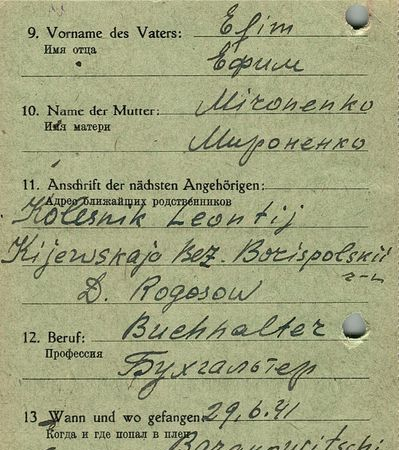 9. Vorname des Vaters: Efim
Имя отца
Ефим
10. Name der Mutter: Mironenko
Имя матери
Мироненко
11. Anschrift der nächsten Angehörigen:
Адрес ближайших родственников
Kolesnik Leontij
Kijewskaja Bez. Borispolskii
D. Rogosow
12. Beruf: Buchhalter
Профессия
Бухгальтер
13 Wann und wo gefangen 29.6.41
Когда и где попал в плен
Baranowitschi